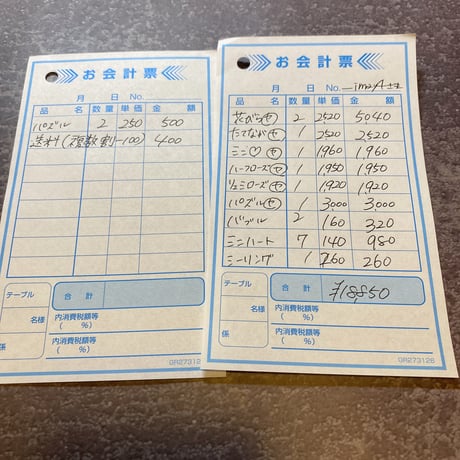 お会計票
月 日 No.
品 名 数量 単価 金 額
パズル 2 250 500
送料(複数割-100) 400
テーブル
名様
係
合 計
内消費税額等
( %)
内消費税額等
( %)
GR273126
お会計票
月 日 No.
品 名 数量 単価 金 額
花びら㋳ 2 2520 5040
たてなが㋳ 1 2520 2520
ミニ♡㋳ 1 1,960 1,960
ハーフローズ㋳ 1 1,950 1,950
1/2ミニローズ㋳ 1 1,920 1,920
パズル㋳ 1 3000 3,000
バブル 2 160 320
ミニハート 7 140 980
シーリング 1 260 260
テーブル
名様
係
合 計 ¥18850
内消費税額等
( %)
内消費税額等
( %)
GR273126